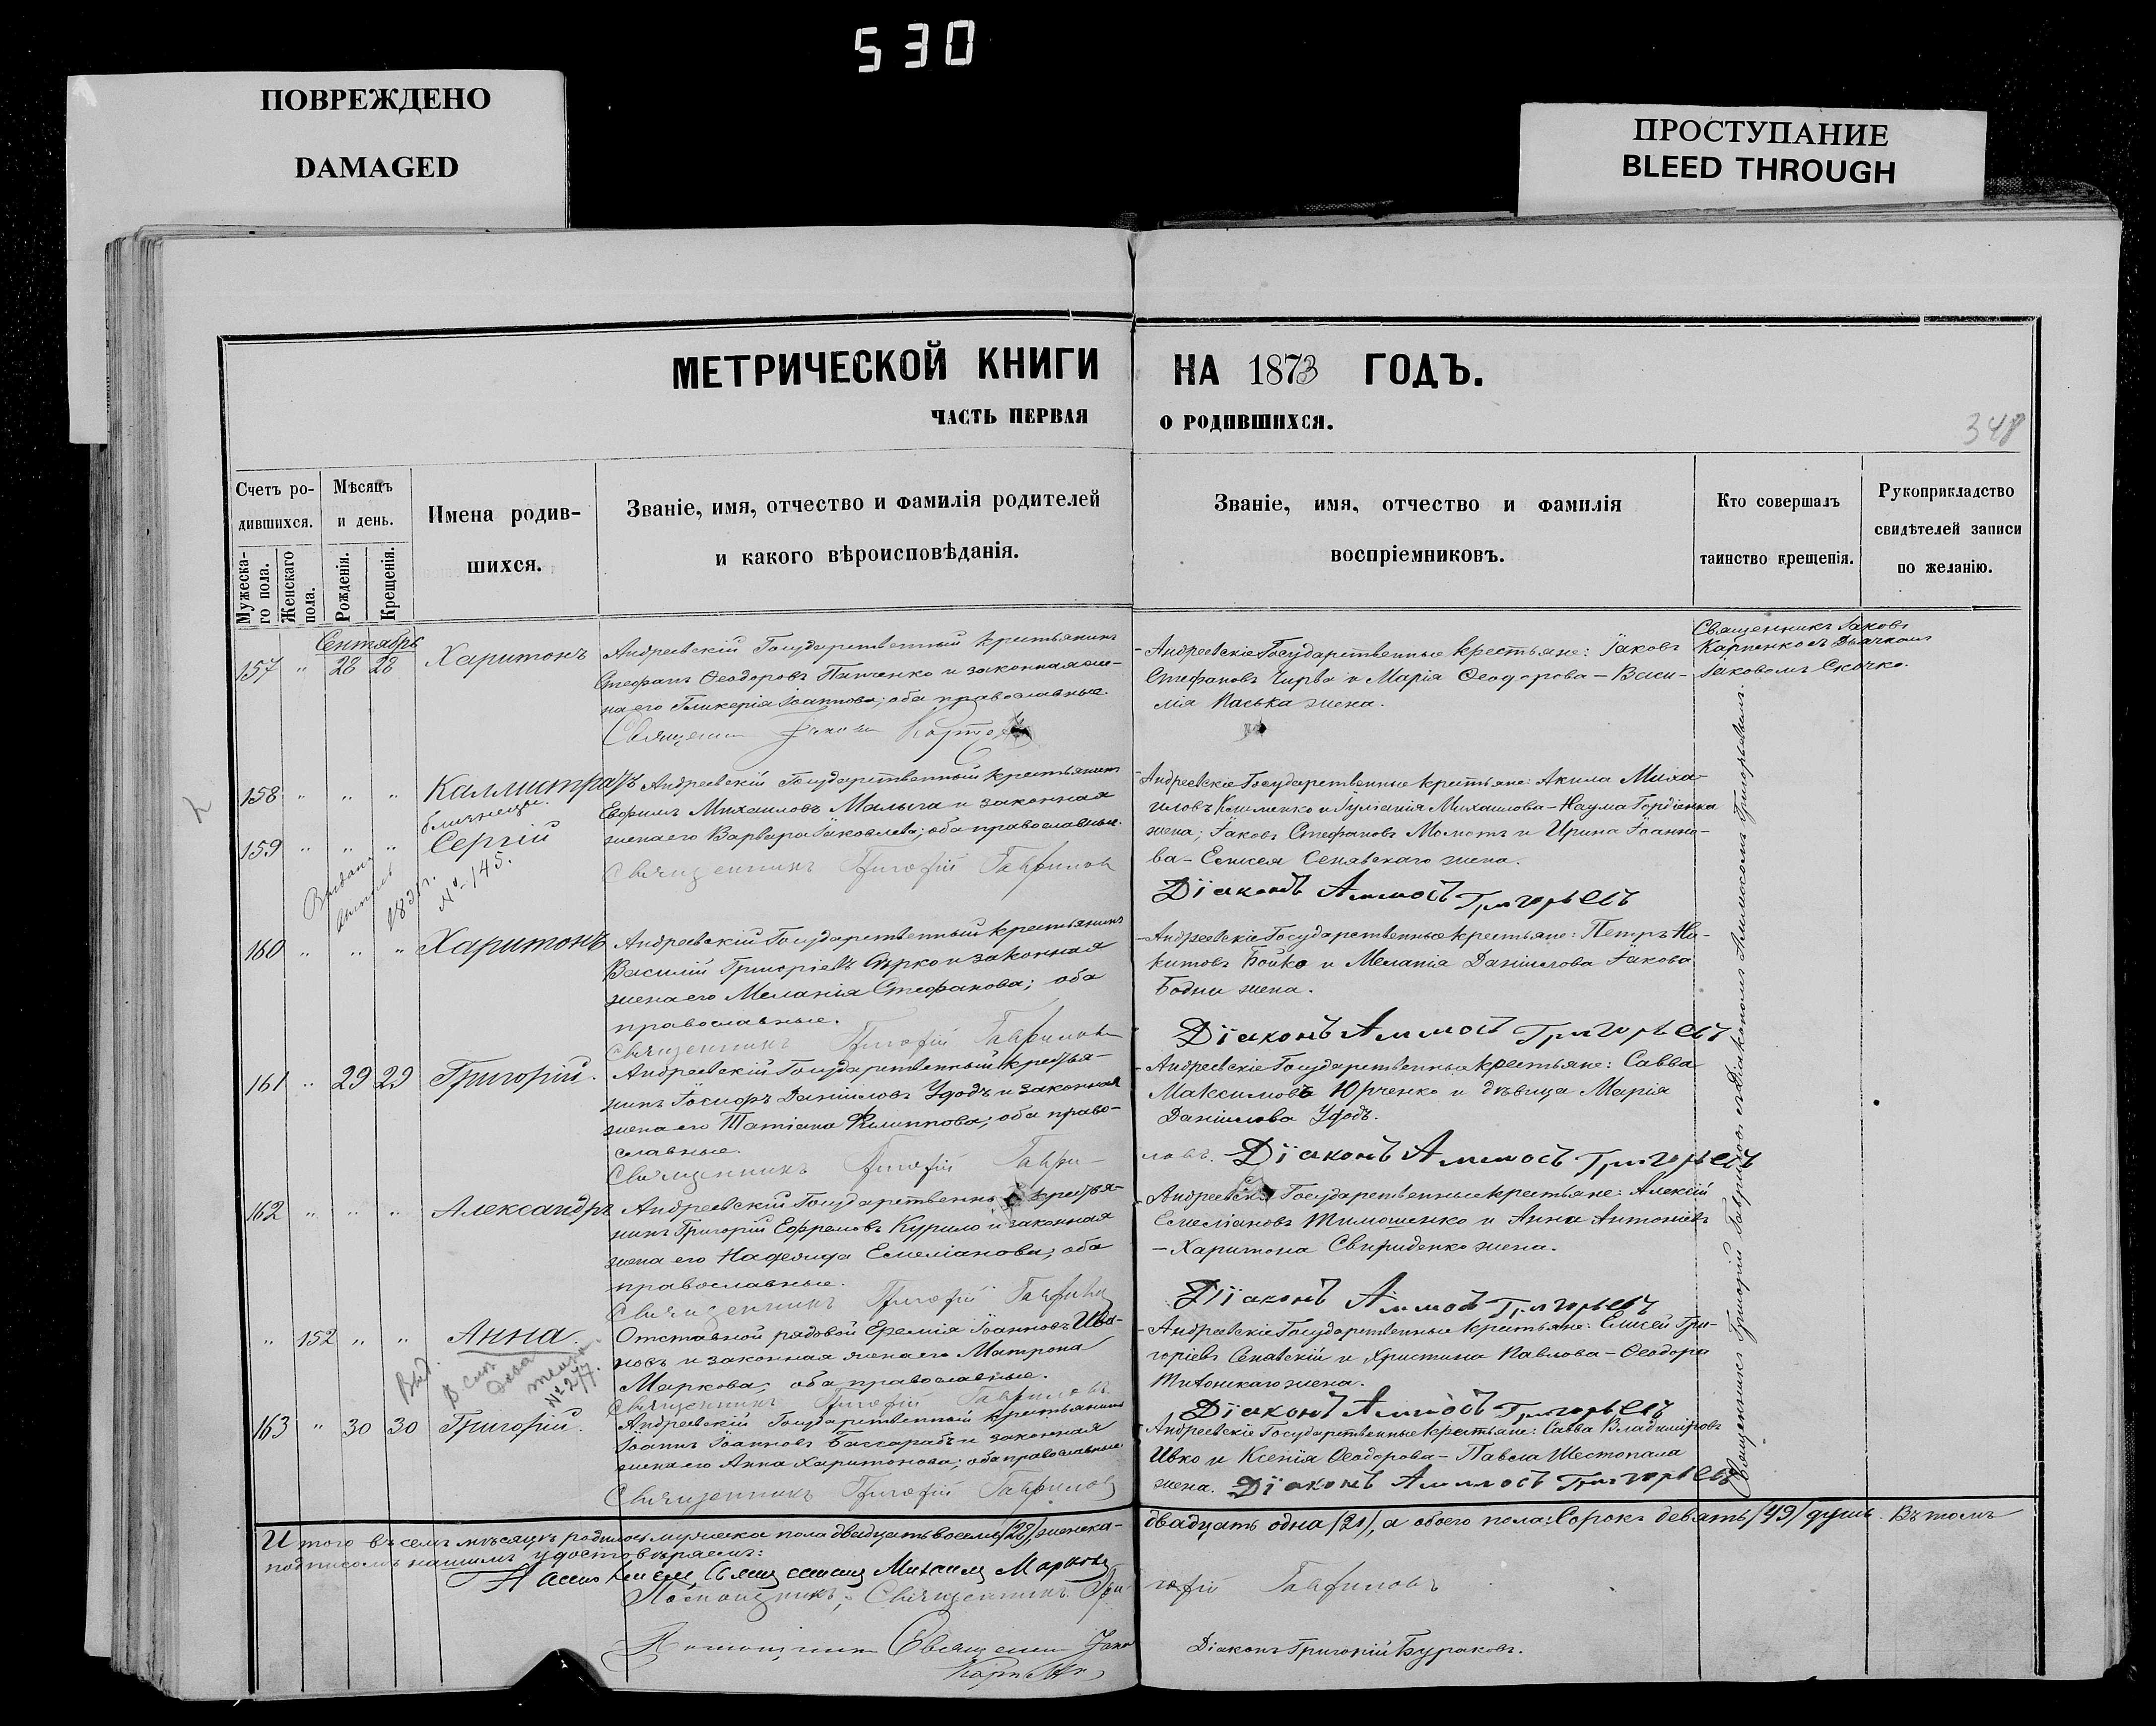 530
ПОВРЕЖДЕНО
DAMAGED
ПРОСТУПАНИЕ
BLEED THROUGH
МЕТРИЧЕСКОЙ КНИГИ НА 1873 ГОДЪ.
ЧАСТЬ ПЕРВАЯ О РОДИВШИХСЯ.
348
Счетъ ро-
дившихся.
Мужеска-
го пола.
Женскаго
пола.
Мѣсяцъ
и день.
Рожденія.
Крещенія.
Имена родив-
шихся.
Званіе, имя, отчество и фамилія родителей
и какого вѣроисповѣданія.
Званіе, имя, отчество и фамилія
воспріемниковъ.
Кто совершалъ
таинство крещенія.
Рукоприкладство
свидѣтелей записи
по желанію.
Сентябрь
157 " 28 28 Харитонъ
Андреевскій Государственный крестьянинъ
Стефанъ Ѳеодоровъ и законная же-
на его Гликерія Іоаннова; оба православные.
Андреевскіе Государственные крестьяне: Іаковъ
Стефановъ Чирва и Марія Ѳеодорова - Васи-
лія Паська жена.
Священникъ Іаковъ
Карпенко съ Дьячкомъ
Іаковомъ Скочко.
158 " " " Каллистратъ
близнецы.
159 " " " Сергій
Андреевскій Государственный крестьянинъ
Евфимъ Михаиловъ Малыга и законная
жена его Варвара Іаковлева; оба православные.
Священникъ Григорій Гавриловъ
Андреевскіе Государственные крестьяне: Акила Миха-
иловъ Клименко и Іуліанія Михаилова - Наума Гордіенка
жена; Іаковъ Стефановъ Момотъ и Ирина Іоанно-
ва - Елисея Сенявскаго жена.
Діаконъ Аммосъ Григорьевъ
№ 145.
160 " " " Харитонъ
Андреевскій Государственный крестьянинъ
Василій Григоріевъ Сѣрко и законная
жена его Меланія Стефанова; оба
православные.
Священникъ Григорій Гавриловъ
Андреевскіе Государственные крестьяне: Петръ Ни-
китовъ Бойко и Меланія Даніилова Іакова
Бодни жена.
Діаконъ Аммосъ Григорьевъ
161 " 29 29 Григорій.
Андреевскій Государственный крестья-
нинъ Іосифъ Даніиловъ Удодъ и законная
жена его Татіана Филиппова; оба право-
славные.
Священникъ Григорій Гаври-
ловъ.
Андреевскіе Государственные крестьяне: Савва
Максимовъ Юрченко и дѣвица Марія
Даніилова Удодъ.
Діаконъ Аммосъ Григорьевъ
162 " " " Александръ
Андреевскій Государственный крестья-
нинъ Григорій Ефремовъ Курило и законная
жена его Надежда Емеліанова; оба
православные.
Священникъ Григорій Гавриловъ
Андреевскіе Государственные крестьяне: Алексій
Емеліановъ Тимошенко и Анна Антоніева
- Харитона Свириденко жена.
Діаконъ Аммосъ Григорьевъ
" 152 " " Анна.
№ 277.
Отставной рядовой Еремія Іоанновъ Ива-
новъ и законная жена его Матрона
Маркова; оба православные.
Священникъ Григорій Гавриловъ
Андреевскіе Государственные крестьяне: Елисей Гри-
горіевъ Сенявскій и Христина Павлова - Ѳеодора
жена.
Діаконъ Аммосъ Григорьевъ
163 " 30 30 Григорій.
Андреевскій Государственный крестьянинъ
Іоаннъ Іоанновъ Бассарабъ и законная
жена его Анна Харитонова; оба православные.
Священникъ Григорій Гавриловъ
Андреевскіе Государственные крестьяне: Савва Владиміровъ
Ивко и Ксенія Ѳеодорова - Павла Шестопала
жена. Діаконъ Аммосъ Григорьевъ
Священникъ Григорій Гавриловъ съ Діакономъ Аммосомъ Григорьевымъ.
Итого въ семъ мѣсяцѣ родилось мужеска пола двадцать восемь /28/, женска- двадцать одна /21/, а обоего пола: Сорокъ девять /49/ душъ. Въ томъ
подписомъ нашимъ удостовѣряемъ:
Священникъ Михаилъ Марковъ
Помощникъ, Священникъ Григорій Гавриловъ
Помощникъ Священникъ Іаковъ
Діаконъ Григорій Бураковъ.